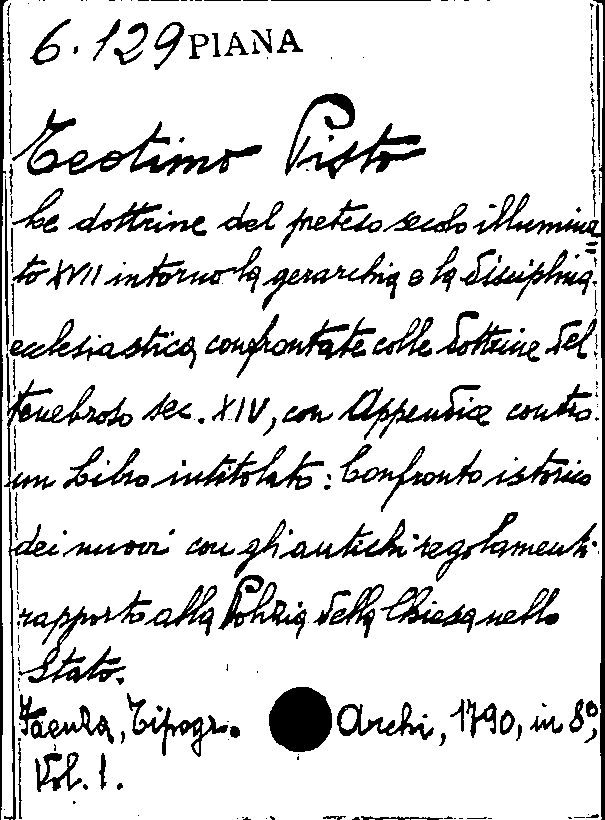 6.129 PIANA
Teotimo Pisto
Le dottrine del preteso secolo illumina=
to XVII intorno la gerarchia e la disciplina
ecclesiastica, confrontate colle dottrine del
tenebroso sec. XIV, con Appendice contro
un Libro intitolato: Confronto istorico
dei nuovi con gli antichi regolamenti
rapporto alla Polizia della Chiesa nello
Stato.
Faenza, Tipogr. Archi, 1790, in 8º,
Vol. 1.